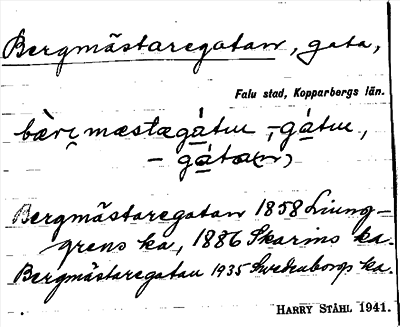 Bergmästaregatan, gata,
Falu stad, Kopparbergs län.
bær̀i mæstægátu, -gátu,
- gáta(n)
Bergmästaregatan 1858 Liung-
grens ka, 1886 Skarins ka.
Bergmästaregatan 1935 Swedenborgs ka.
HARRY STÅHL 1941.